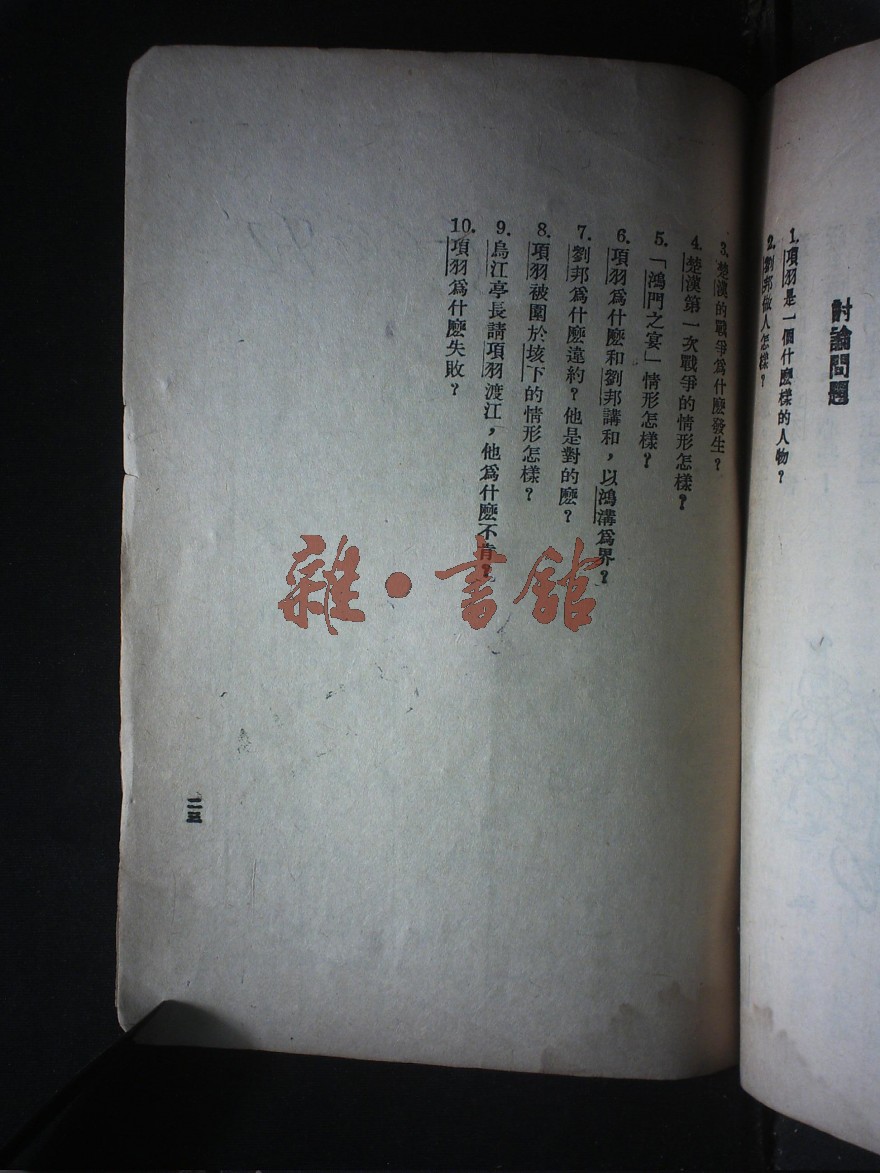 討論問題
1. 項羽是一個什麼樣的人物？
2. 劉邦做人怎樣？
3. 楚漢的戰爭爲什麼發生？
4. 楚漢第一次戰爭的情形怎樣？
5. 「鴻門之宴」情形怎樣？
6. 項羽爲什麼和劉邦講和，以鴻溝爲界？
7. 劉邦爲什麼違約？他是對的麼？
8. 項羽被圍於垓下的情形怎樣？
9. 烏江亭長請項羽渡江，他爲什麼不肯？
10. 項羽爲什麼失敗？
二五
雜·書館